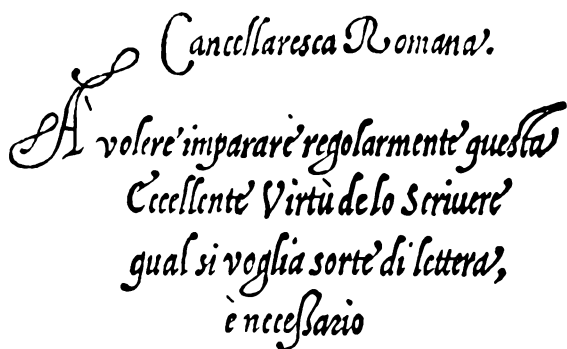 Cancellaresca Romana.
À volere imparare regolarmente questa
Eccellente Virtù de lo Scriuere
qual si voglia sorte di lettera,
è neceßario